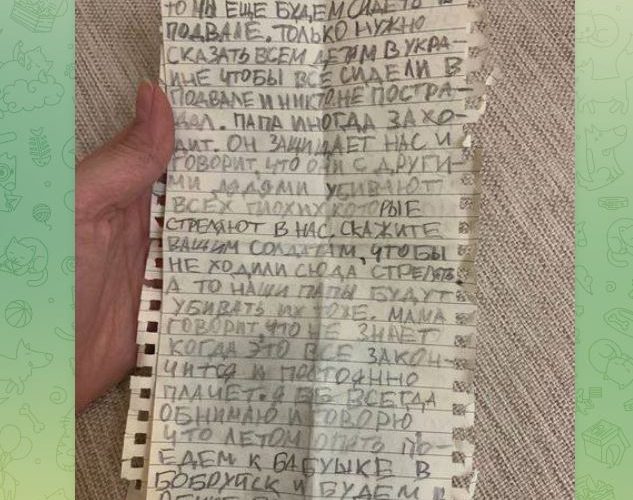 ТО МЫ ЕЩЕ БУДЕМ СИДЕТЬ В
ПОДВАЛЕ. ТОЛЬКО НУЖНО
СКАЗАТЬ ВСЕМ ДЕТЯМ В УКРА-
ИНЕ ЧТОБЫ ВСЕ СИДЕЛИ В
ПОДВАЛЕ И НИКТО НЕ ПОСТРА-
ДАЛ. ПАПА ИНОГДА ЗАХО-
ДИТ. ОН ЗАЩИЩАЕТ НАС И
ГОВОРИТ, ЧТО ОНИ С ДРУГИ-
МИ ДЯДЯМИ УБИВАЮТ
ВСЕХ ПЛОХИХ КОТОРЫЕ
СТРЕЛЯЮТ В НАС. СКАЖИТЕ
ВАШИМ СОЛДАТАМ, ЧТОБЫ
НЕ ХОДИЛИ СЮДА СТРЕЛЯТЬ.
А ТО НАШИ ПАПЫ БУДУТ
УБИВАТЬ ИХ ТОЖЕ. МАМА
ГОВОРИТ, ЧТО НЕ ЗНАЕТ
КОГДА ЭТО ВСЕ ЗАКОН-
ЧИТСЯ И ПОСТОЯННО
ПЛАЧЕТ. Я ЕЕ ВСЕГДА
ОБНИМАЮ И ГОВОРЮ
ЧТО ЛЕТОМ ОПЯТЬ ПО-
ЕДЕМ К БАБУШКЕ В
БОБРУЙСК И БУДЕМ